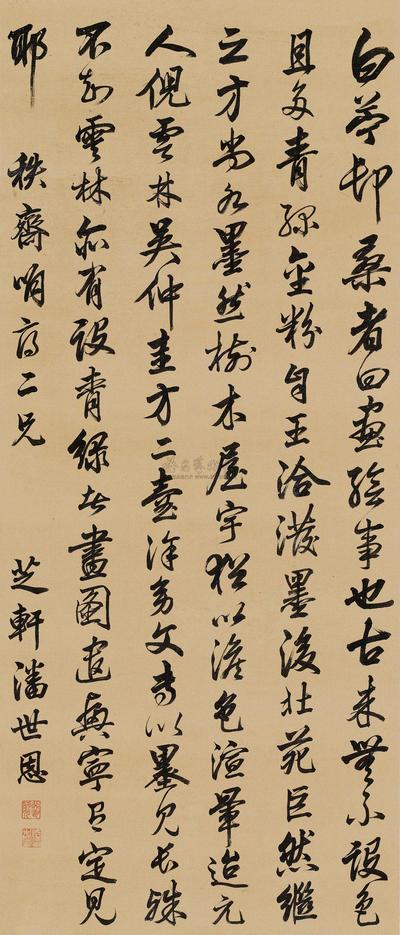 白苧邨桑者曰畫繪事也古來無不設色
且多青綠金粉自王洽潑墨後北苑巨然繼
之方尚水墨然樹木屋宇猶以澹色渲暈迨元
人倪雲林吳仲圭方々壺徐幼文專以墨見長殊
不知雲林亦有設青綠者畫圖遣興寧有定見
耶 秩齋明府二兄 芝軒潘世恩